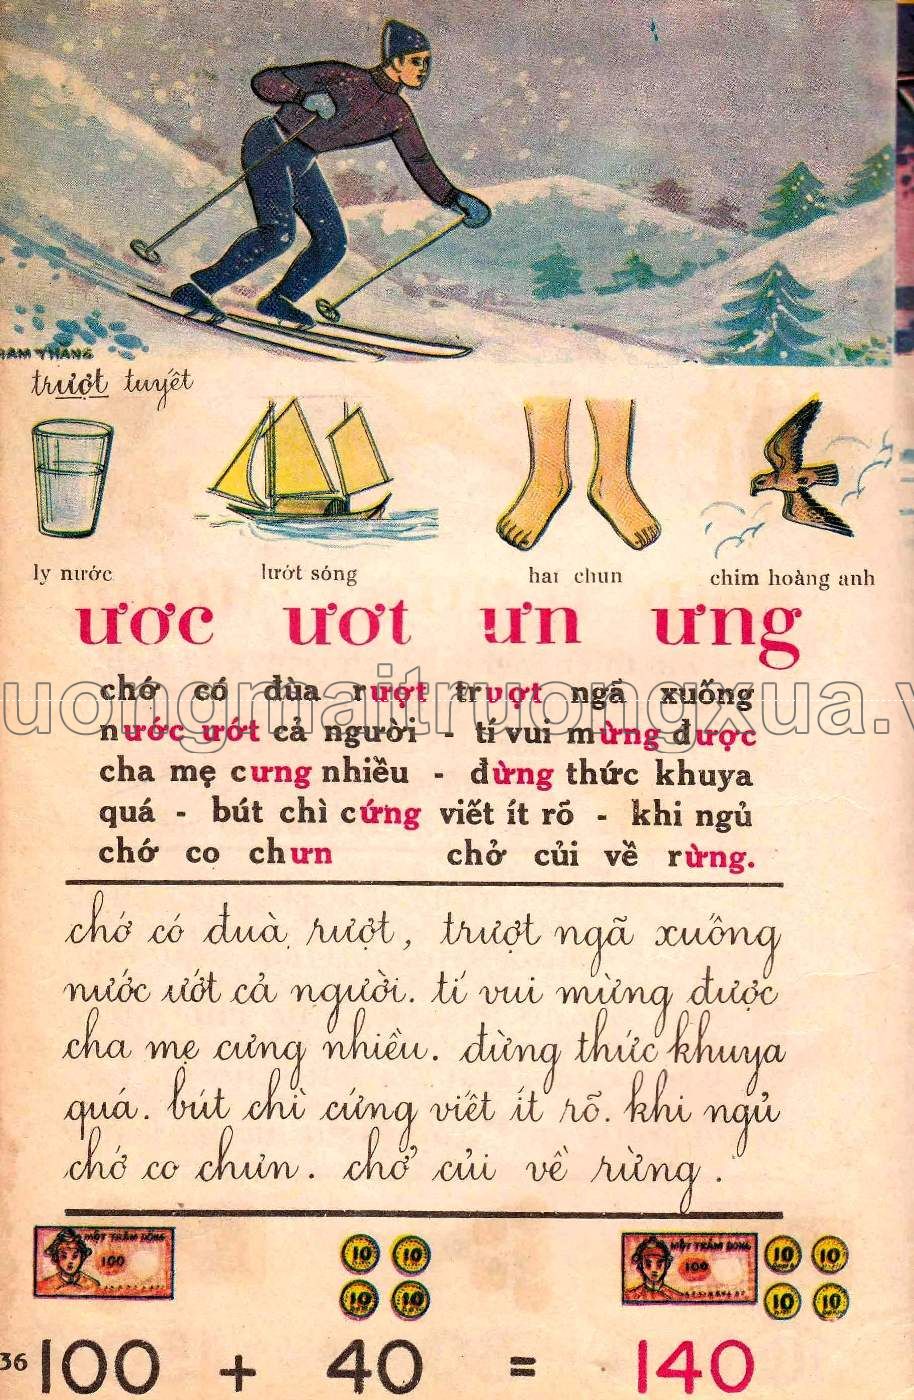 PHẠM THĂNG
trượt tuyết
ly nước
lướt sóng
hai chun
chim hoàng anh
ươc ươt ưn ưng
chớ có đùa rượt trượt ngã xuống
uongmaitruongxua.v
nước ướt cả người - tí vui mừng được
cha mẹ cưng nhiều - đừng thức khuya
quá - bút chì cứng viết ít rõ - khi ngủ
chớ co chưn chở củi về rừng.
chớ có đuà rượt, trượt ngã xuống
nước ướt cả người. tí vui mừng được
cha mẹ cưng nhiều. đừng thức khuya
quá. bút chì cứng viết ít rõ. khi ngủ
chớ co chưn. chở củi về rừng.
MỘT TRĂM ĐỒNG
100
10 10
10 10
MỘT TRĂM ĐỒNG
100
10 10
10 10
36 100 + 40 = 140